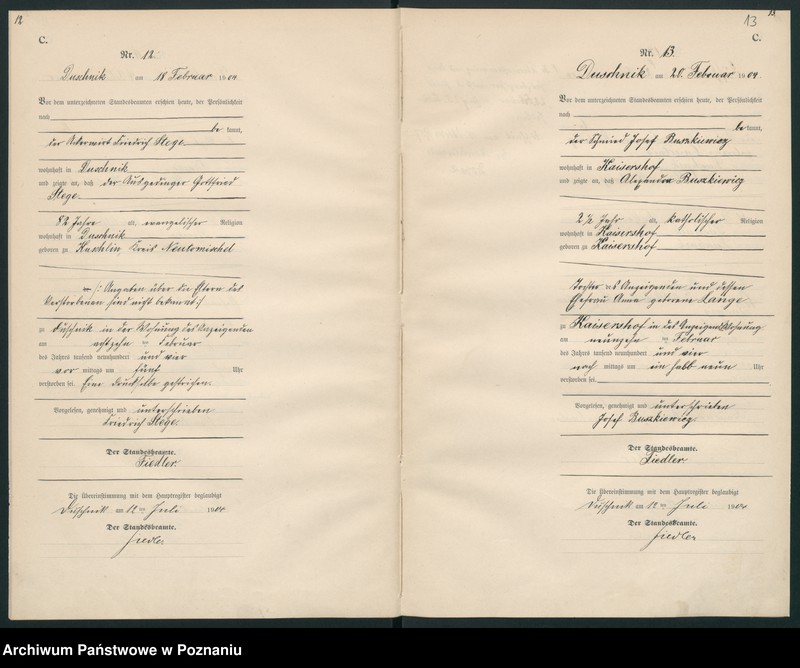 12
C.
Nr. 12
Duschnik am 18 Februar 1904
Vor dem unterzeichneten Standesbeamten erschien heute, der Persönlichkeit
nach
be kannt,
der Ackerwirt Friedrich Stege
wohnhaft in Duschnik
und zeigte an, daß der Ausgedinger Gottfried
Stege
82 Jahre alt, evangelischer Religion
wohnhaft in Duschnik
geboren zu Kuschlin, Kreis Neutomischel
/: Angaben über die Eltern des
Verstorbenen sind nicht bekannt :/
zu Duschnik in der Wohnung des Anzeigenden
am achtzehn ten Februar
des Jahres tausend neunhundert und vier
vor mittags um fünf Uhr
verstorben sei. Eine Druckstelle gestrichen.
Vorgelesen, genehmigt und unterschrieben
Friedrich Stege.
Der Standesbeamte.
Fiedler.
Die Übereinstimmung mit dem Hauptregister beglaubigt
Duschnik am 12 ten Juli 1904
Der Standesbeamte.
Fiedler
13
13
C.
Nr. 13
Duschnik am 20. Februar 1904.
Vor dem unterzeichneten Standesbeamten erschien heute, der Persönlichkeit
nach
be kannt,
der Schmied Josef Buszkiewicz
wohnhaft in Kaisershof
und zeigte an, daß Alexandra Buszkiewicz
2½ Jahr alt, katholischer Religion
wohnhaft in Kaisershof
geboren zu Kaisershof
Tochter des Anzeigenden und dessen
Ehefrau Anna geborene Lange
zu Kaisershof in des Anzeigers Wohnung
am neunzehn ten Februar
des Jahres tausend neunhundert und vier
nach mittags um ein halb neun Uhr
verstorben sei.
Vorgelesen, genehmigt und unterschrieben
Josef Buszkiewicz.
Der Standesbeamte.
Fiedler
Die Übereinstimmung mit dem Hauptregister beglaubigt
Duschnik am 12 ten Juli 1904
Der Standesbeamte.
Fiedler
Archiwum Państwowe w Poznaniu